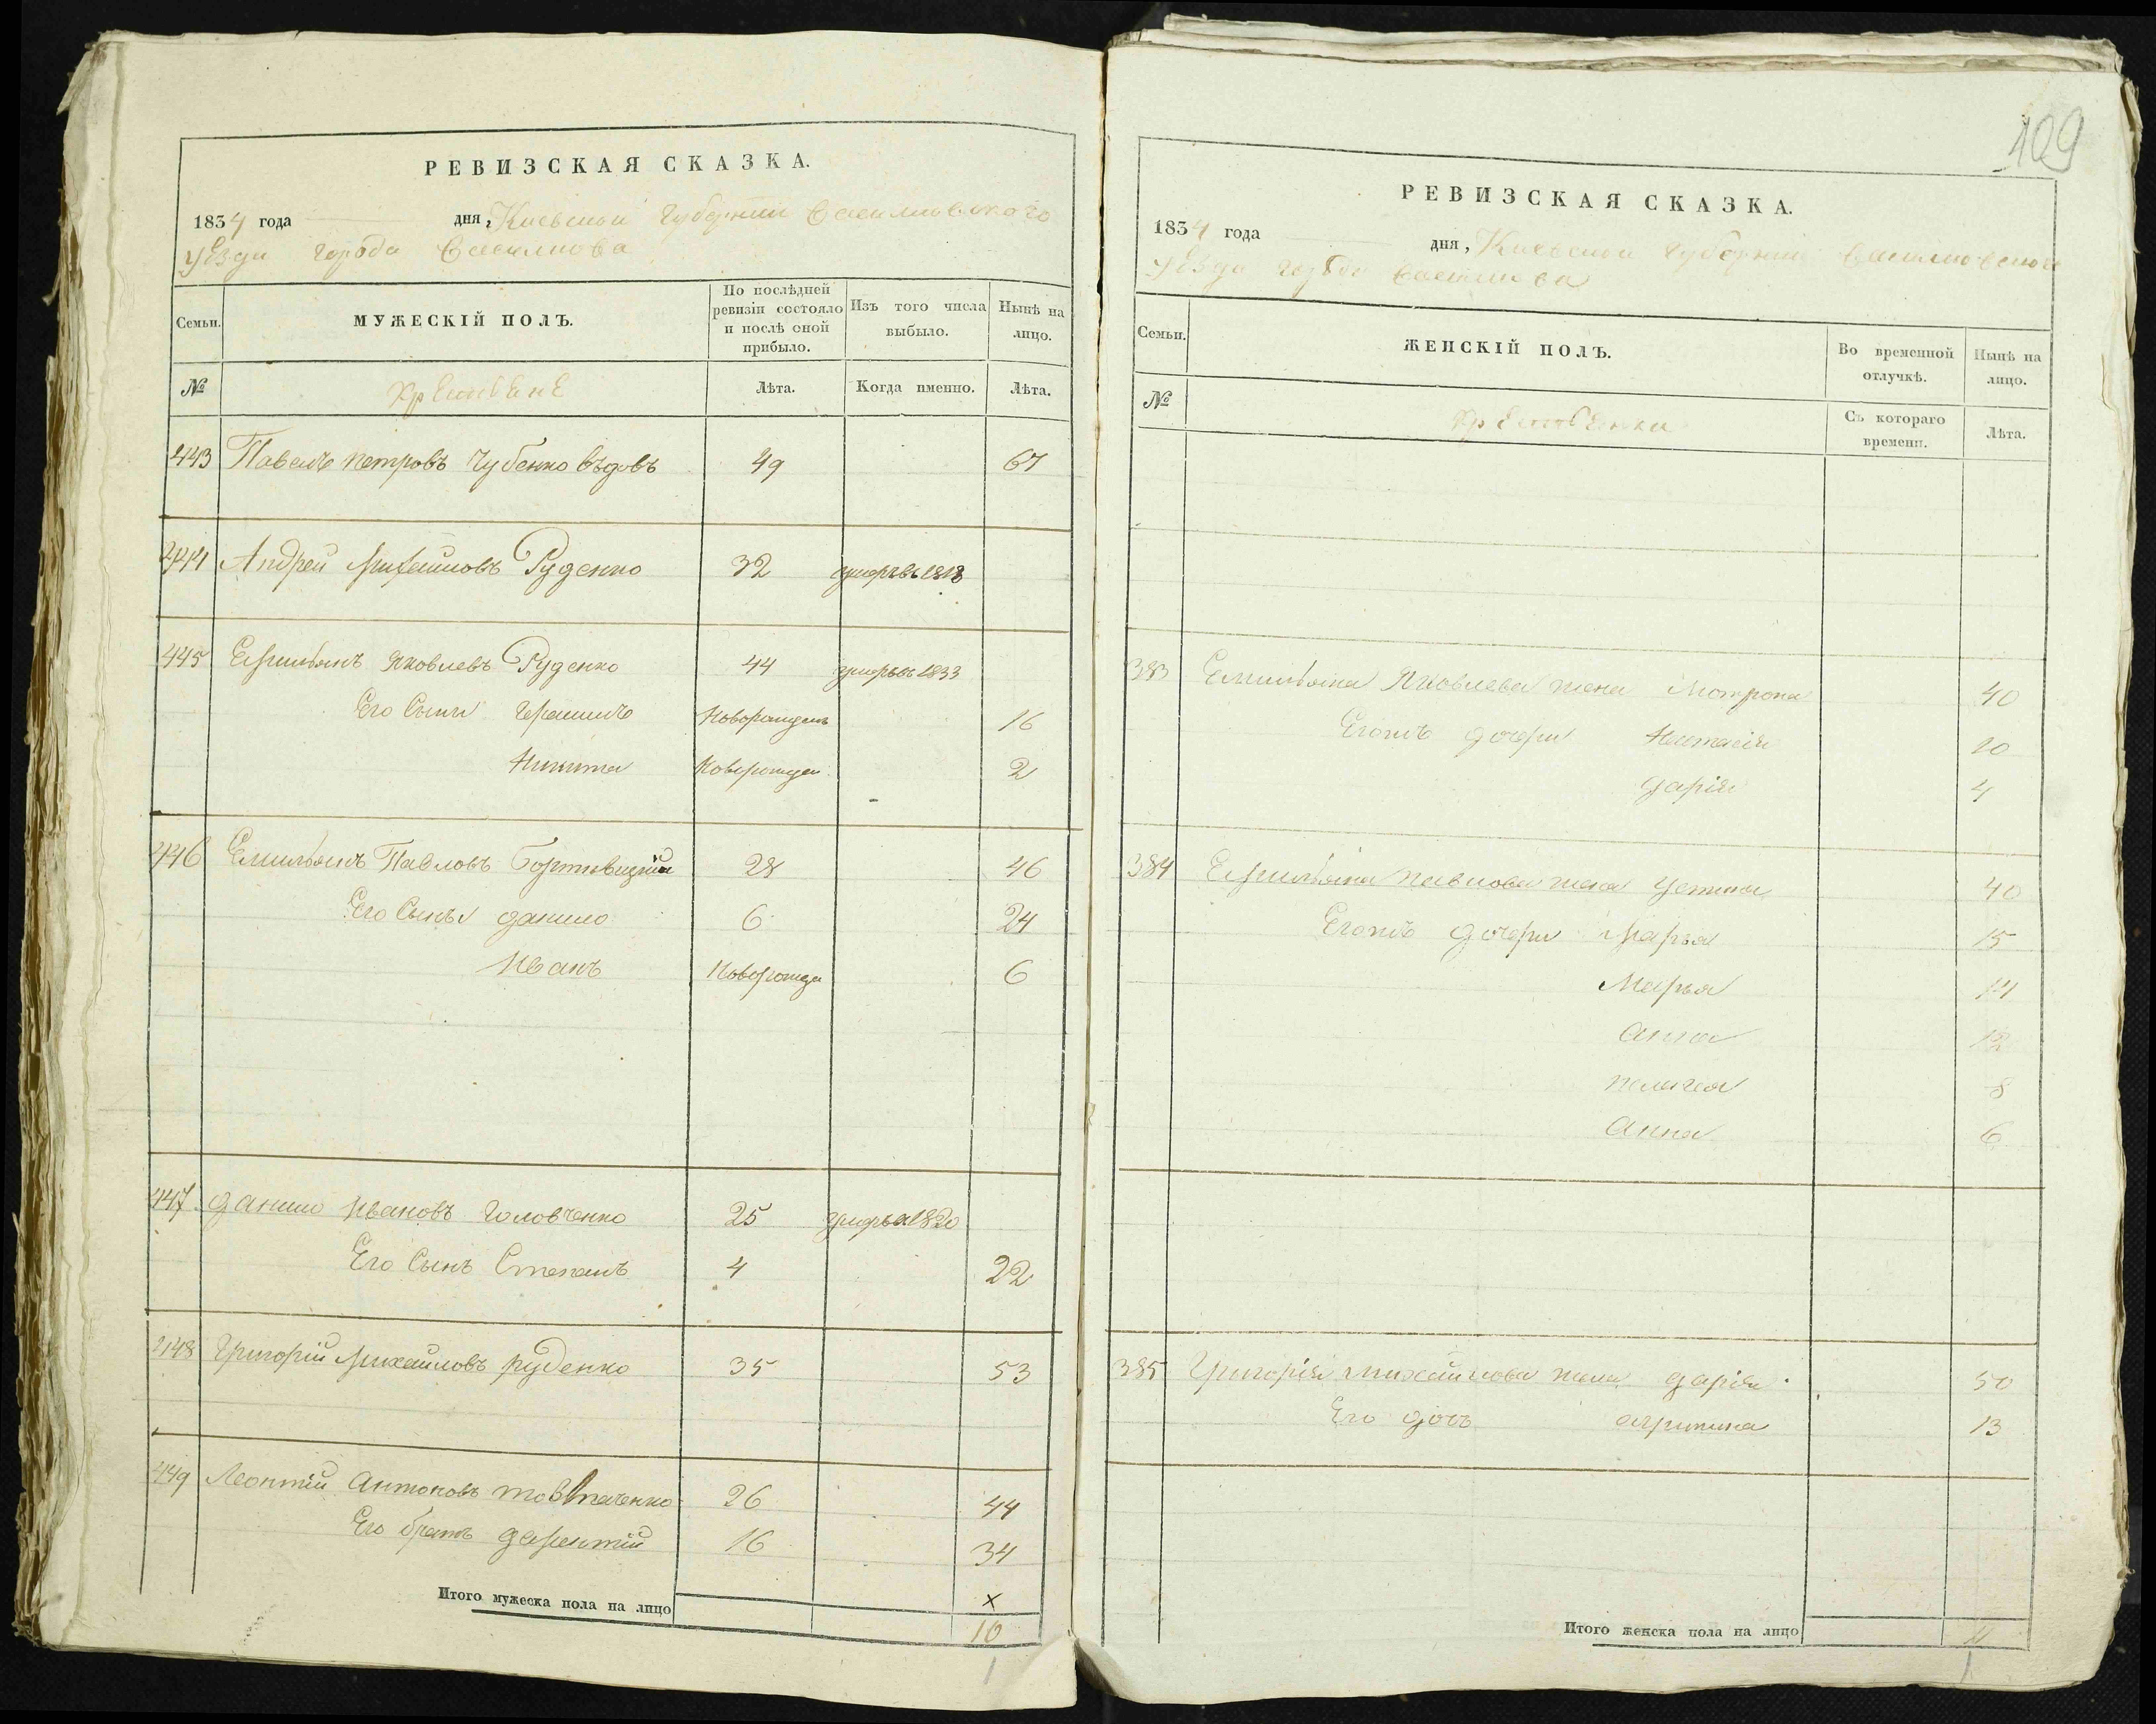 РЕВИЗСКАЯ СКАЗКА.
1834 года дня, Киевской губернии Васильковского
уезда города Василькова
Семьи.
МУЖЕСКІЙ ПОЛЪ.
По послѣдней ревизіи состояло и послѣ оной прибыло.
Изъ того числа выбыло.
Нынѣ на лицо.
№
Лѣта.
Когда именно.
Лѣта.
443 Павелъ Петровъ Чубенко вдовъ 49 67
444 Андрей Михайловъ Руденко 32 умеръ въ 1818
445 Емильянъ Яковлевъ Руденко 44 умеръ въ 1833
Его Сыны Герасимъ Новорожден 16
Никита Новорожден 2
446 Емильянъ Павловъ 28 46
Его Сыны Данило 6 24
Иванъ Новорожде 6
447 Данило Ивановъ Головченко 25 умеръ 1820
Его Сынъ Степанъ 4 22
448 Григорій Михайловъ Руденко 35 53
449 Леонтій Антоновъ 26 44
Его братъ 16 34
Итого мужеска пола на лицо
x
10
1
109
РЕВИЗСКАЯ СКАЗКА.
1834 года дня, Киевской губерніи Васильковского
уезда города Василькова
Семьи.
ЖЕНСКІЙ ПОЛЪ.
Во временной отлучкѣ.
Нынѣ на лицо.
№
Съ котораго времени.
Лѣта.
383 Емильяна Яковлева жена Мотрона 40
Егожъ дочери Настасія 10
Дарія 4
384 Емильяна Павлова жена Устина 40
Егожъ дочери Марья 15
Марья 14
Анна 12
Пелагея 8
Анна 6
385 Григорія Михайлова жена Дарія 50
Его дочь Агрипина 13
Итого женска пола на лицо
11
1